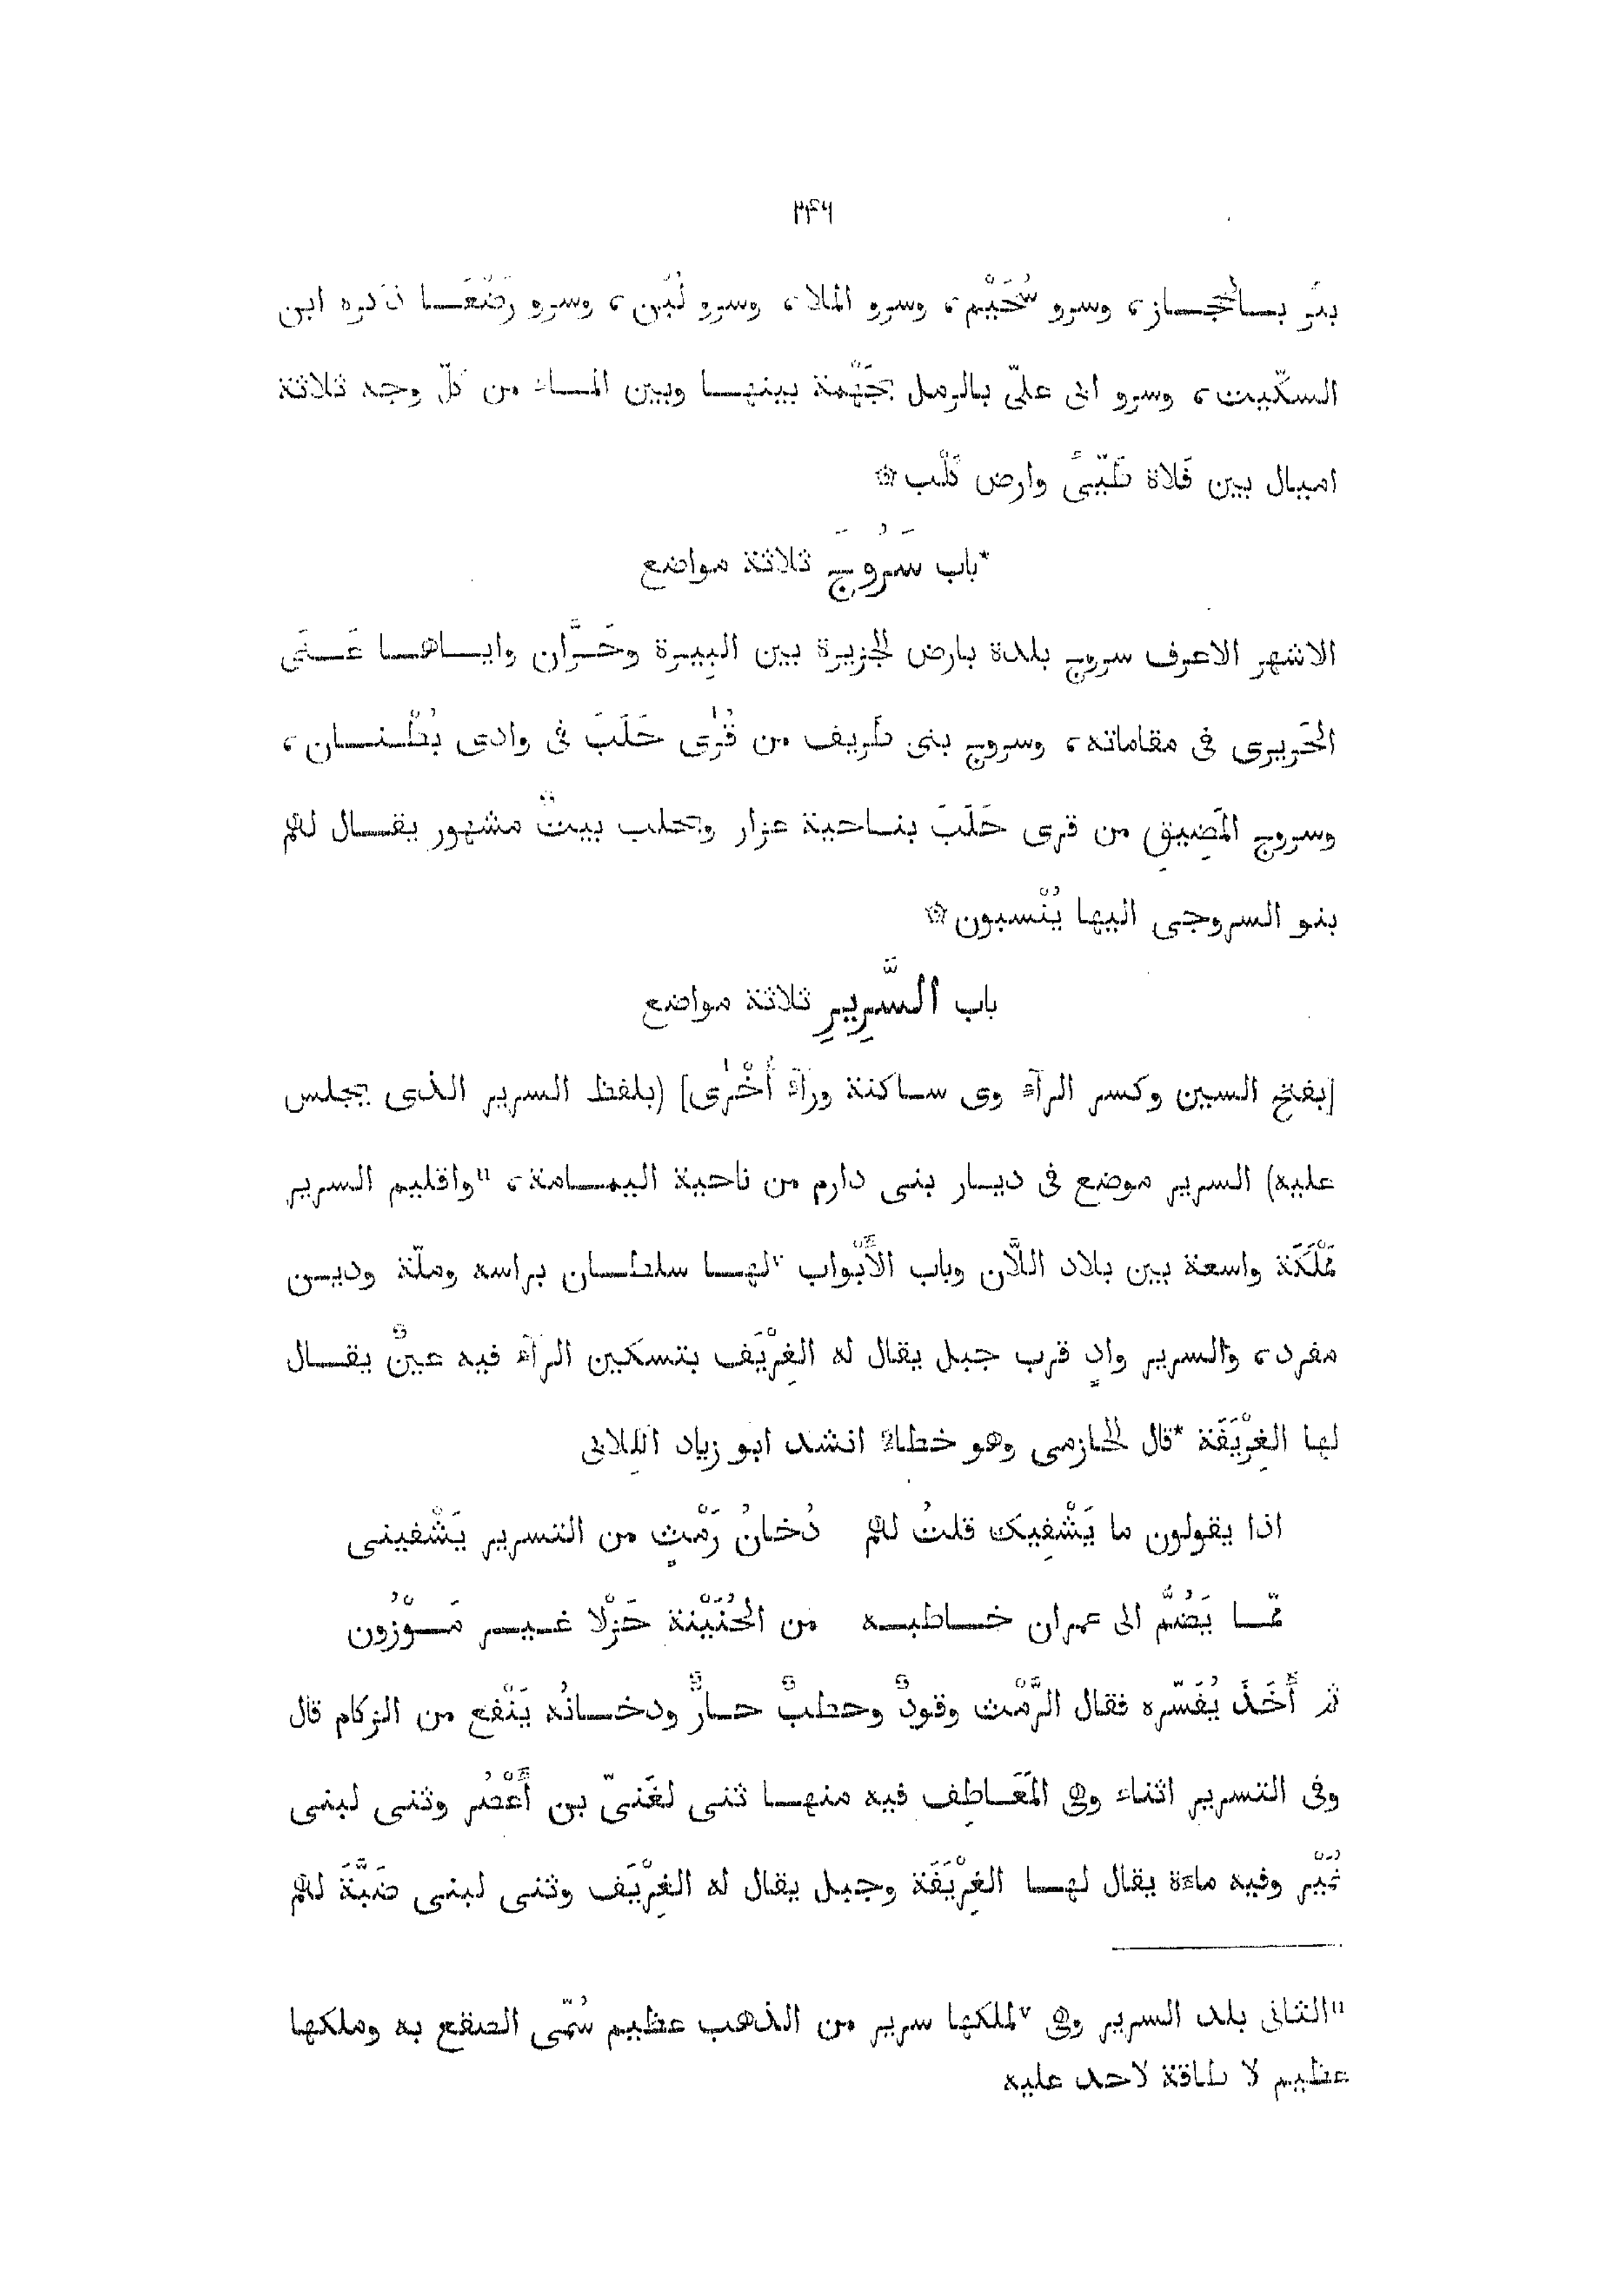 ٢٤٦
بئر بالحجاز، وسرو سُحَيْم، وسرو الملا، وسرو لُبْن، وسرو رَضْعَا ذكره ابن
السكّيت، وسرو ابى علىّ بالرمل بجَهْمة بينها وبين الماء من كلّ وجه ثلاثة
اميال بين فَلاة طَيّىٔ وارض كَلْب ۞
*باب سَرُوجَ ثلاثة مواضع
الاشهر الاعرف سروج بلدة بارض الجزيرة بين البِيرة وحَرَّان واياها عَنَى
الحَريرى فى مقاماته، وسروج بنى طَريف من قُرٰى حَلَبَ فى وادى بُطْنان،
وسروج المَضِيقِ من قرى حَلَبَ بناحية عزار وبحلب بيتٌ مشهور يقال لهم
بنو السروجى اليها يُنْسبون ۞
باب السَّرِيرِ ثلاثة مواضع
[بفتح السين وكسر الرآء وى ساكنة ورآء أُخْرٰى] (بلفظ السرير الذى يجلس
عليه) السرير موضع فى ديار بنى دارم من ناحية اليمامة، "واقليم السرير
مَمْلَكَة واسعة بين بلاد اللَّان وباب الأَبْواب ٧لها سلطان براسه وملّة ودين
مفرد، والسرير وادٍ قرب جبل يقال له الغِرْيَف بتسكين الرآء فيه عينٌ يقال
لها الغِرْيَفَة *قال الحازمى وهو خطاء انشد ابو زياد الكِلابى
اذا يقولون ما يَشْفِيك قلتُ لهم دُخانُ رَمْثٍ من التسرير يَشْفينى
ممّا يَضُمّ الى عمران خاطبه من الجُنَيْنة جَزْلا غير مَوْزُون
ثم أَخَذَ يُفَسّره فقال الرَّمْث وقودٌ وحطبٌ حارٌّ ودخانُه يَنْفع من الزكام قال
وفى التسرير اثناء وهى المَعَاطِف فيه منها ثنى لغَنىّ بن أَعْصُر وثنى لبنى
نُمَيْر وفيه ماءة يقال لها الغِرْيَفَة وجبل يقال له الغِرْيَف وثنى لبنى ضَبَّةَ لهم
"الثانى بلد السرير وهى ٧لملكها سرير من الذهب عظيم سُمّى الصقع به وملكها
عظيم لا طاقة لاحد عليه